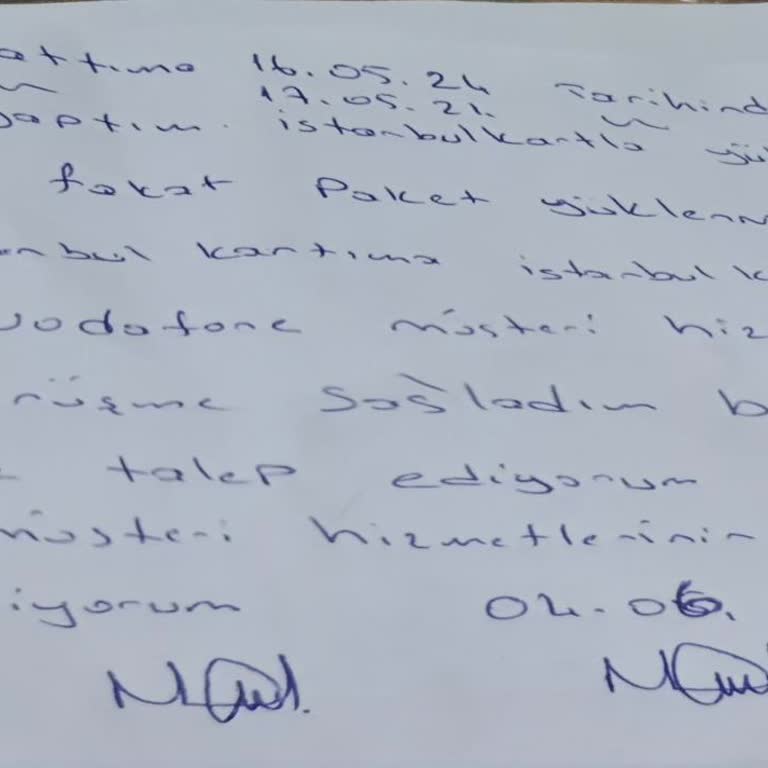 attıma 16.05.24 Tarihind
17.05.24
yaptım. istanbulkartla yük
fakat Paket yüklenm
nbul kartıma istanbul k
vodafone müşteri hiz
rüşme Sağladım b
talep ediyorum
müşteri hizmetlerinin
iyorum 04.06.